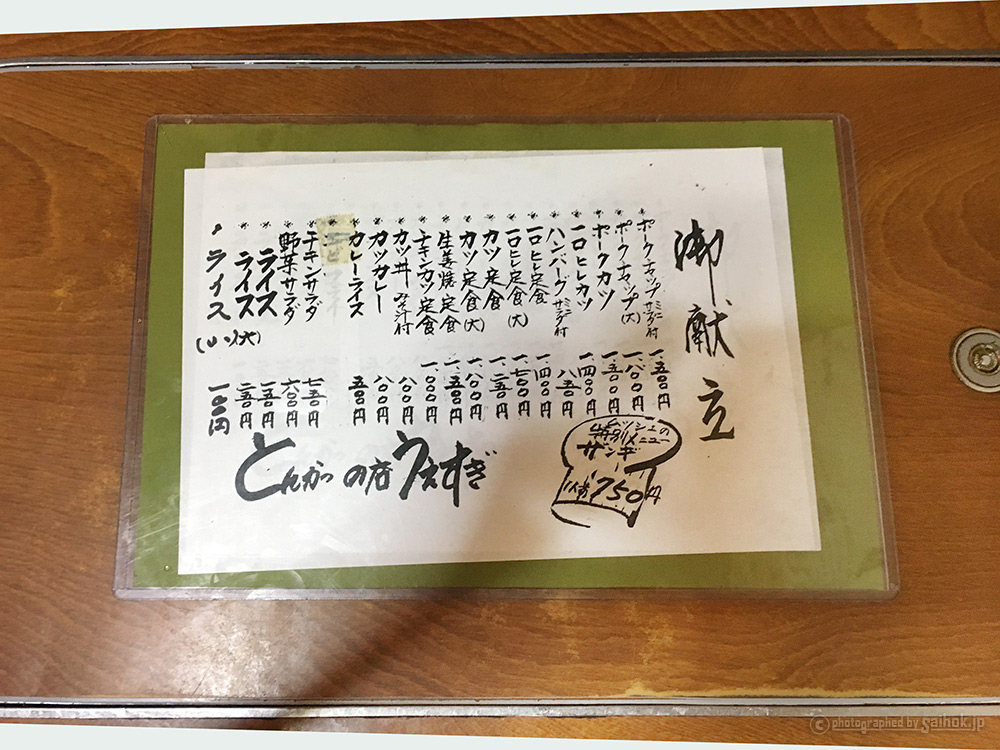 御献立
ポークチャップ ミニサラダ付 一、五〇〇円
ポークチャップ(大) 一、八〇〇円
ポークカツ 一、五〇〇円
一口ヒレカツ 一、四〇〇円
ハンバーグ ミニサラダ付 八五〇円
一口ヒレ定食 一、四〇〇円
一口ヒレ定食(大) 一、七〇〇円
カツ定食 一、二五〇円
カツ定食(大) 一、八〇〇円
生姜焼定食 一、五〇〇円
チキンカツ定食 一、〇〇〇円
カツ丼 みそ汁付 八〇〇円
カツカレー 八〇〇円
カレーライス 五〇〇円
チキンサラダ 七五〇円
野菜サラダ 六〇〇円
ライス 一五〇円
ライス(大) 二五〇円
ライス(小) 一〇〇円
ムッシュの
特別メニュー
ザンギ
1人前 750円
とんかつの店うえすぎ
© photographed by saihok.jp